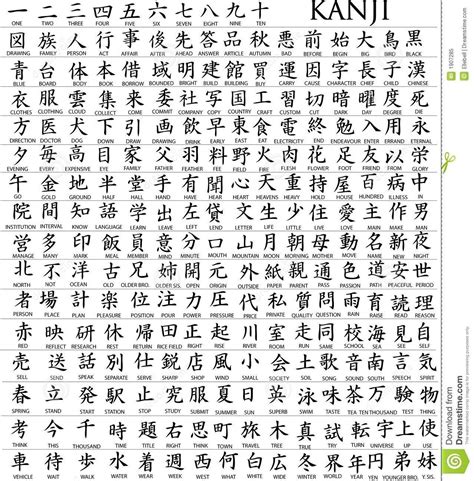 一二三四五六七八九十 KANJI
ONE TWO THREE FOUR FIVE SIX SEVEN EIGHT NINE TEN
図族人行事後先答品秋悪前始大鳥黒
DRAWING FAMILY PERSON ACT AFFAIR AFTER AHEAD ANSWER ARTICLE AUTUMN BAD BEFORE BEGIN BIG BIRD BLACK
青台体本借橋明持館買運因字長子漢
BLUE BOARD BODY BOOK BORROW BRIDGE BRIGHT BRING BUILDING BUY CARRY CAUSE CHARACTER CHIEF CHILD CHINESE
衣服雲集来委社写国工習切暗曜度死
CLOTHES CLOTHING CLOUD COLLECT COME COMMITTEE COMPANY COPY COUNTRY CRAFT CUSTOM CUT DARK DAY DEGREE DIE
方医犬下引画飲早東食電終勉入用永
DIRECTION DOCTOR DOG DOWN DRAW DRAWING DRINK EARLY EAST EAT ELECTRICITY END ENDEAVOUR ENTER ERRAND ETERNAL
夕毎高目家父羽料野火肉花足友以栄
EVENING EVERY EXPENSIVE EYE FAMILY FATHER FEATHER FEE FIELD FIRE FLESH FLOWER FOOT FRIEND FROM GLORY
午金地半堂手有聞心天重持屋百病中
GO GOLD GROUND HALF HALL HAND HAVE HEAR HEART HEAVEN HEAVY HOLD HOUSE HUNDRED ILLNESS IN
院間知語学出去貸文生少住愛主作男
INSTITUTION INTERVAL KNOW LANGUAGE LEARN LEAVE LEAVE LEND LETTER LIFE LITTLE LIVE LOVE MAIN MAKE MAN
営多印飯員意分口月山朝母動名新夜
MANAGE MANY MARK MEAL MEMBER MIND MINUTE MOUTH MOON MOUNTAIN MORNING MOTHER MOVE NAME NEW NIGHT
北不洋古兄姉開元外紙親通色道安世
NORTH NOT OCEAN OLD OLDER BRO. OLDER SIS. OPEN ORIGIN OUTSIDE PAPER PARENT PASS PASSION PATH PEACEFUL PERIOD
者場計楽位注力圧代私質問雨育読理
PERSON PLACE PLAN PLEASURE POSITION POUR POWER PRESSURE PERIOD PRIVATE QUALITY QUESTION RAIN RAISE READ REASON
赤映研休帰田正起川室走同校海見自
RED REFLECT RESEARCH REST RETURN RICE FIELD RIGHT RISE RIVER ROOM RUN SAME SCHOOL SEA SEE SELF
売送話別仕鋭店風小会土歌音南言気
SELL SEND SPEAK SEPARATE SERVE SHARP SHOP WIND SMALL SOCIETY SOIL SONG SOUND SOUTH SAY SPIRIT
春立発駅止究出夏日英泳味茶万験物
SPRING STAND START STATION STOP STUDY SUBMIT SUMMER SUN SUPERB SWIM TASTE TEA TEN THOUSAND TEST THING
考今千時題右思町旅木真転宇上使
THINK THIS THOUSAND TIME TITLE RIGHT THINK TOWN TRAVEL TREE TRUE TURN UNIVERSE UP USE
車待歩水着週西何白広冬界年円弟妹
VEHICLE WAIT WALK WATER WEAR WEEK WEST WHAT WHITE WIDE WINTER WORLD YEAR YEN YOUNGER BRO.
Download from
Dreamstime.com